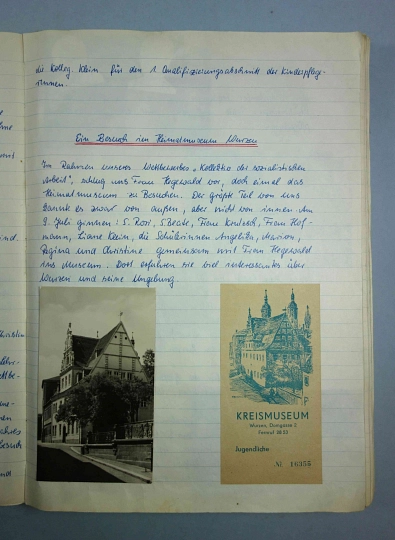 die Kolleg. Klein für den 1. Qualifizierungsabschnitt der Kinderpflege-
rinnen.
Ein Besuch im Heimatmuseum Wurzen
Im Rahmen unseres Wettbewerbes "Kollektiv der sozialistischen
Arbeit", schlug uns Frau Hegewald vor, doch einmal das
Heimatmuseum zu Besuchen. Der größte Teil von uns
kannte es zwar von außen, aber nicht von innen. Am
9. Juli gingen: S. Rosi, S. Beate, Frau Krutzsch, Frau Hof-
mann, Liane Klein, die Schülerinnen Angelika, Marion,
Regina und Christine gemeinsam mit Frau Hegewald
ins Museum. Dort erfuhren sie viel interessantes über
Wurzen und seine Umgebung.
KREISMUSEUM
Wurzen, Domgasse 2
Fernruf 28 53
Jugendliche
№ 16355